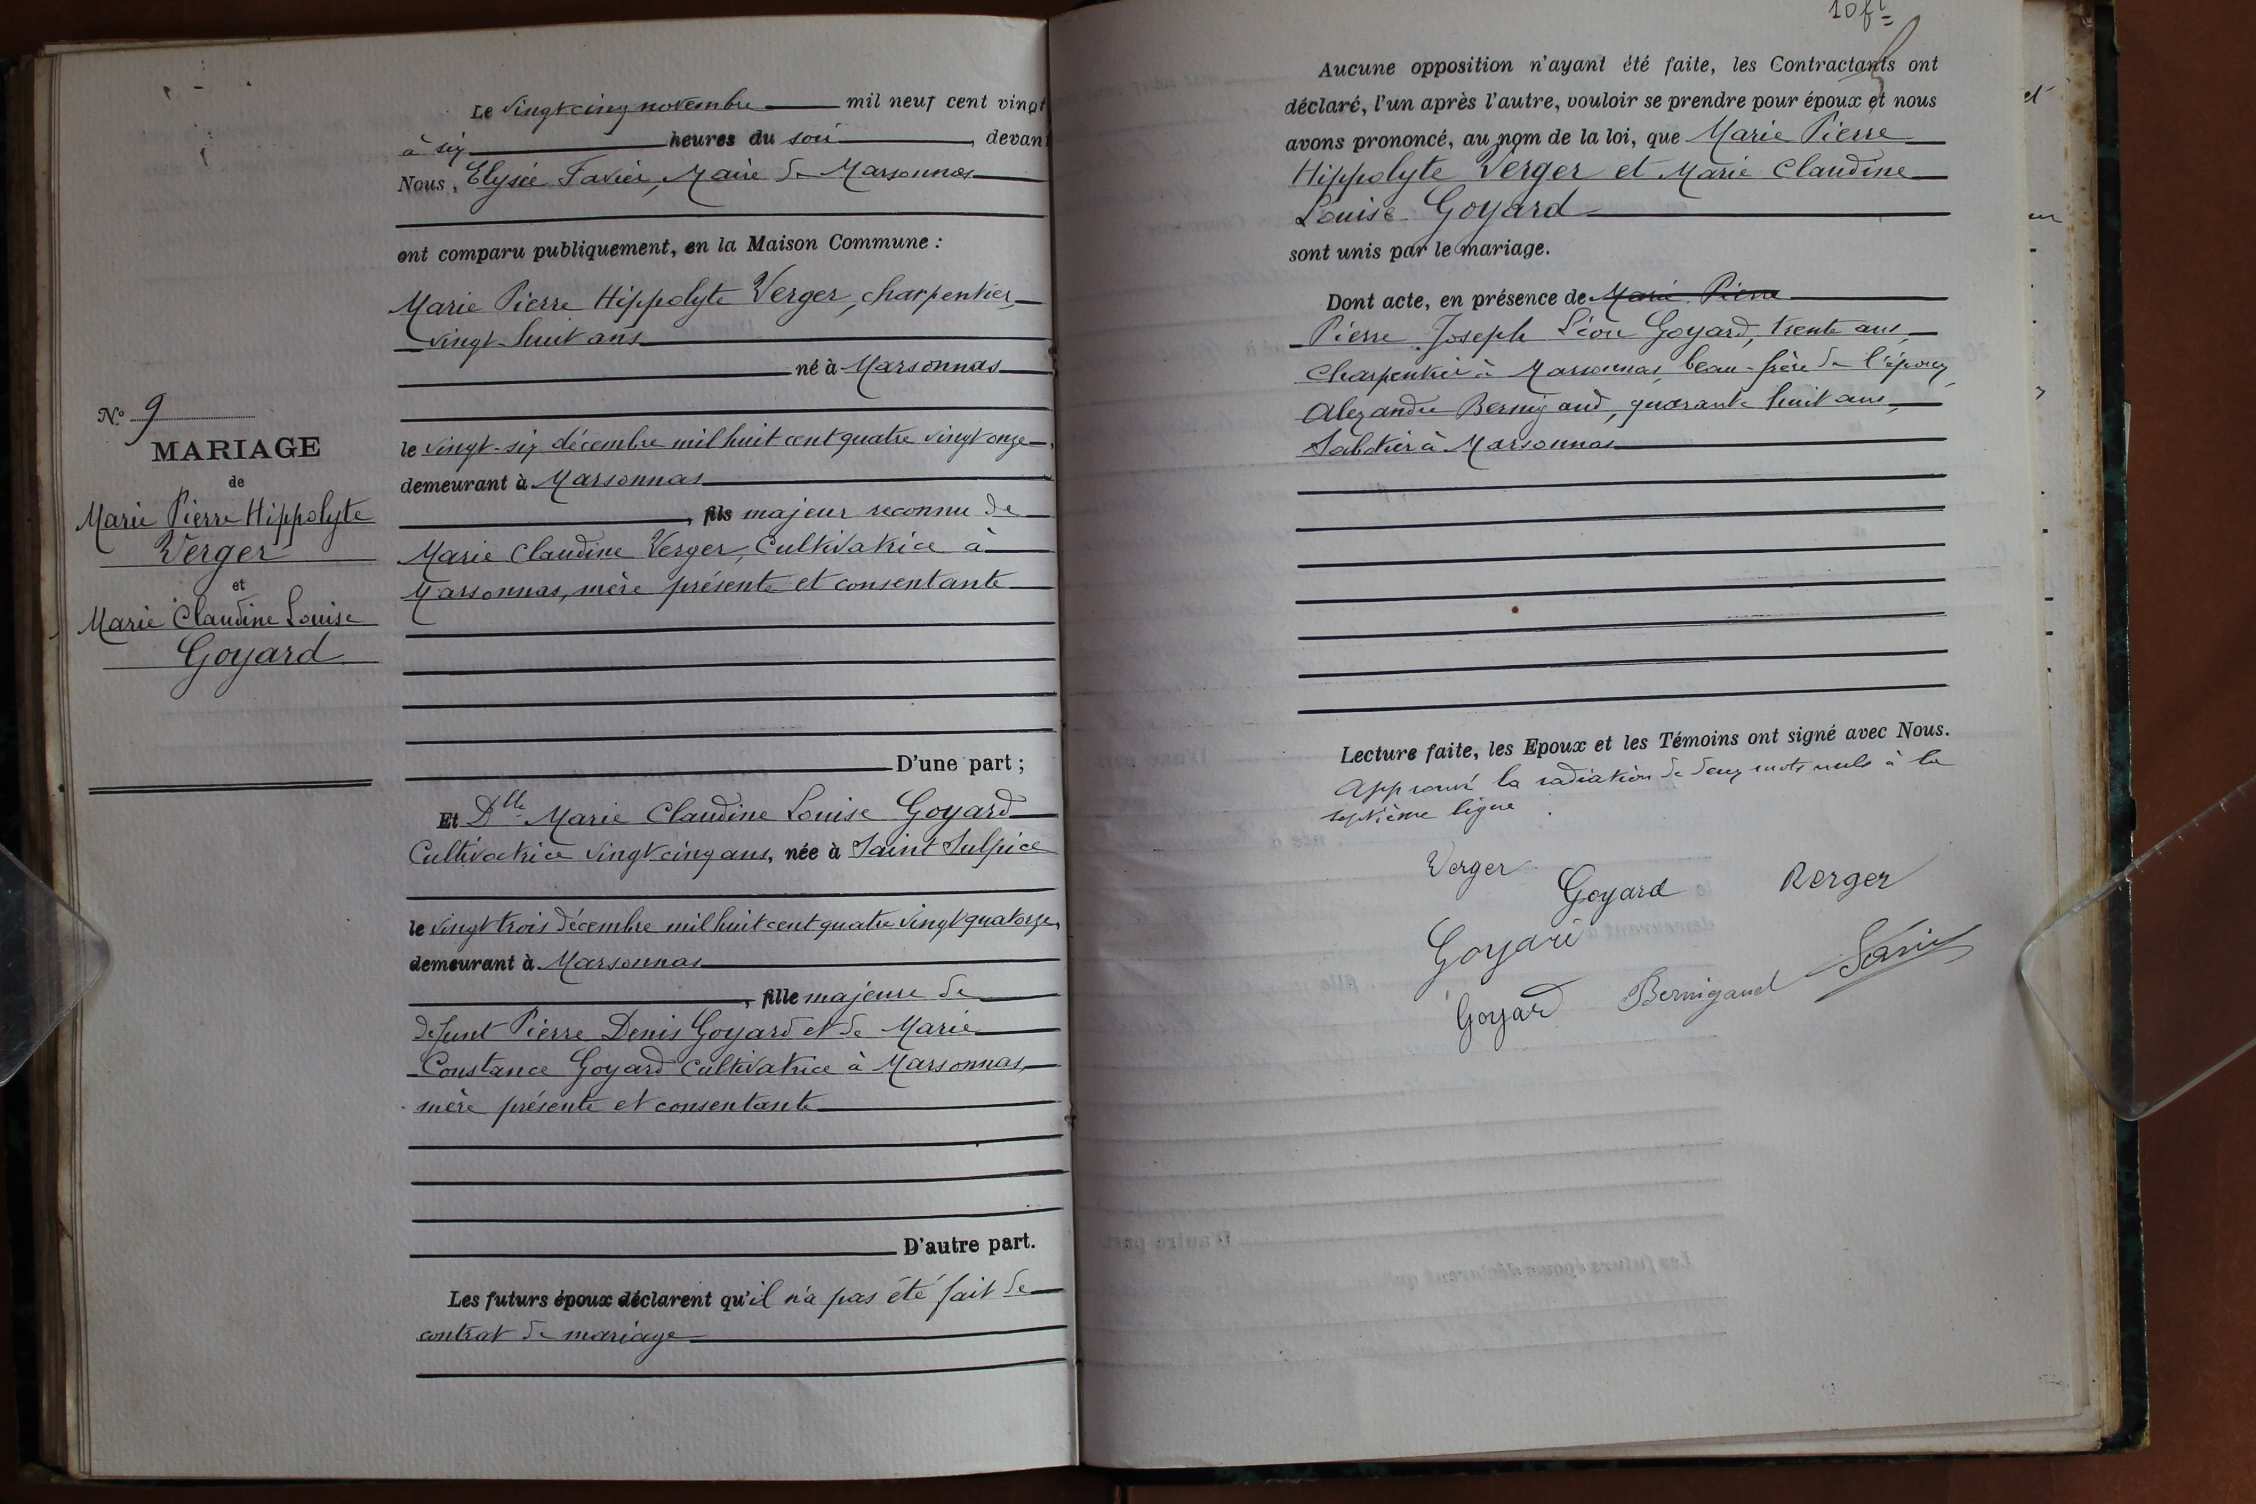 Le vingt cinq novembre mil neuf cent vingt
à six heures du soir, devant
Nous, Elysée Favier, Maire de Marsonnas
ont comparu publiquement, en la Maison Commune :
Marie Pierre Hippolyte Verger, charpentier,
vingt-huit ans
né à Marsonnas
le vingt-six décembre mil huit cent quatre vingt onze,
demeurant à Marsonnas
, fils majeur reconnu de
Marie Claudine Verger, Cultivatrice à
Marsonnas, mère présente et consentante
D'une part ;
Et Dlle Marie Claudine Louise Goyard
Cultivatrice vingt cinq ans, née à Saint Sulpice
le vingt trois décembre mil huit cent quatre vingt quatorze,
demeurant à Marsonnas
, fille majeure de
defunt Pierre Denis Goyard et de Marie
Constance Goyard Cultivatrice à Marsonnas,
mère présente et consentante
D'autre part.
Les futurs époux déclarent qu'il n'a pas été fait de
contrat de mariage
N° 9
MARIAGE
de
Marie Pierre Hippolyte
Verger
et
Marie Claudine Louise
Goyard
Aucune opposition n'ayant été faite, les Contractants ont
déclaré, l'un après l'autre, vouloir se prendre pour époux et nous
avons prononcé, au nom de la loi, que Marie Pierre
Hippolyte Verger et Marie Claudine
Louise Goyard
sont unis par le mariage.
Dont acte, en présence de Marie Pierre
Pierre Joseph Léon Goyard, trente ans,
Charpentier à Marsonnas, beau-frère de l'époux,
Alexandre Bernigaud, quarante huit ans,
Sabotier à Marsonnas
Lecture faite, les Epoux et les Témoins ont signé avec Nous.
Approuvé la radiation de deux mots nuls à la
septième ligne
Verger
Goyard
Rerger
Goyard
Favier
Goyard
Bernigaud